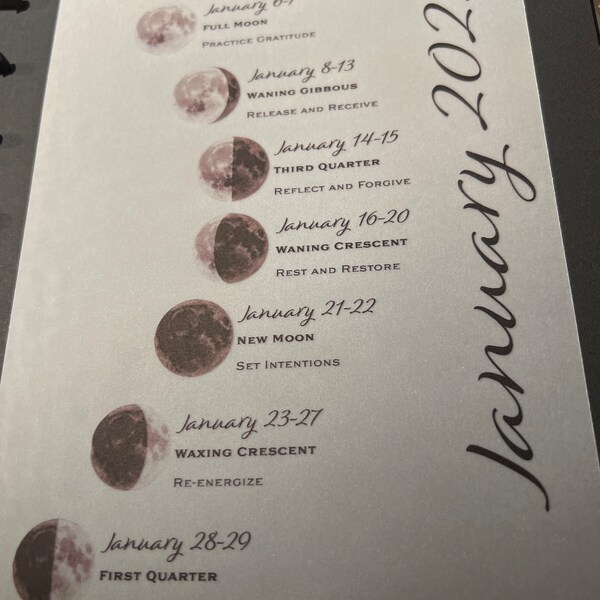 January 6-7
Full Moon
Practice Gratitude
January 8-13
Waning Gibbous
Release and Receive
January 14-15
Third Quarter
Reflect and Forgive
January 16-20
Waning Crescent
Rest and Restore
January 21-22
New Moon
Set Intentions
January 23-27
Waxing Crescent
Re-energize
January 28-29
First Quarter
January